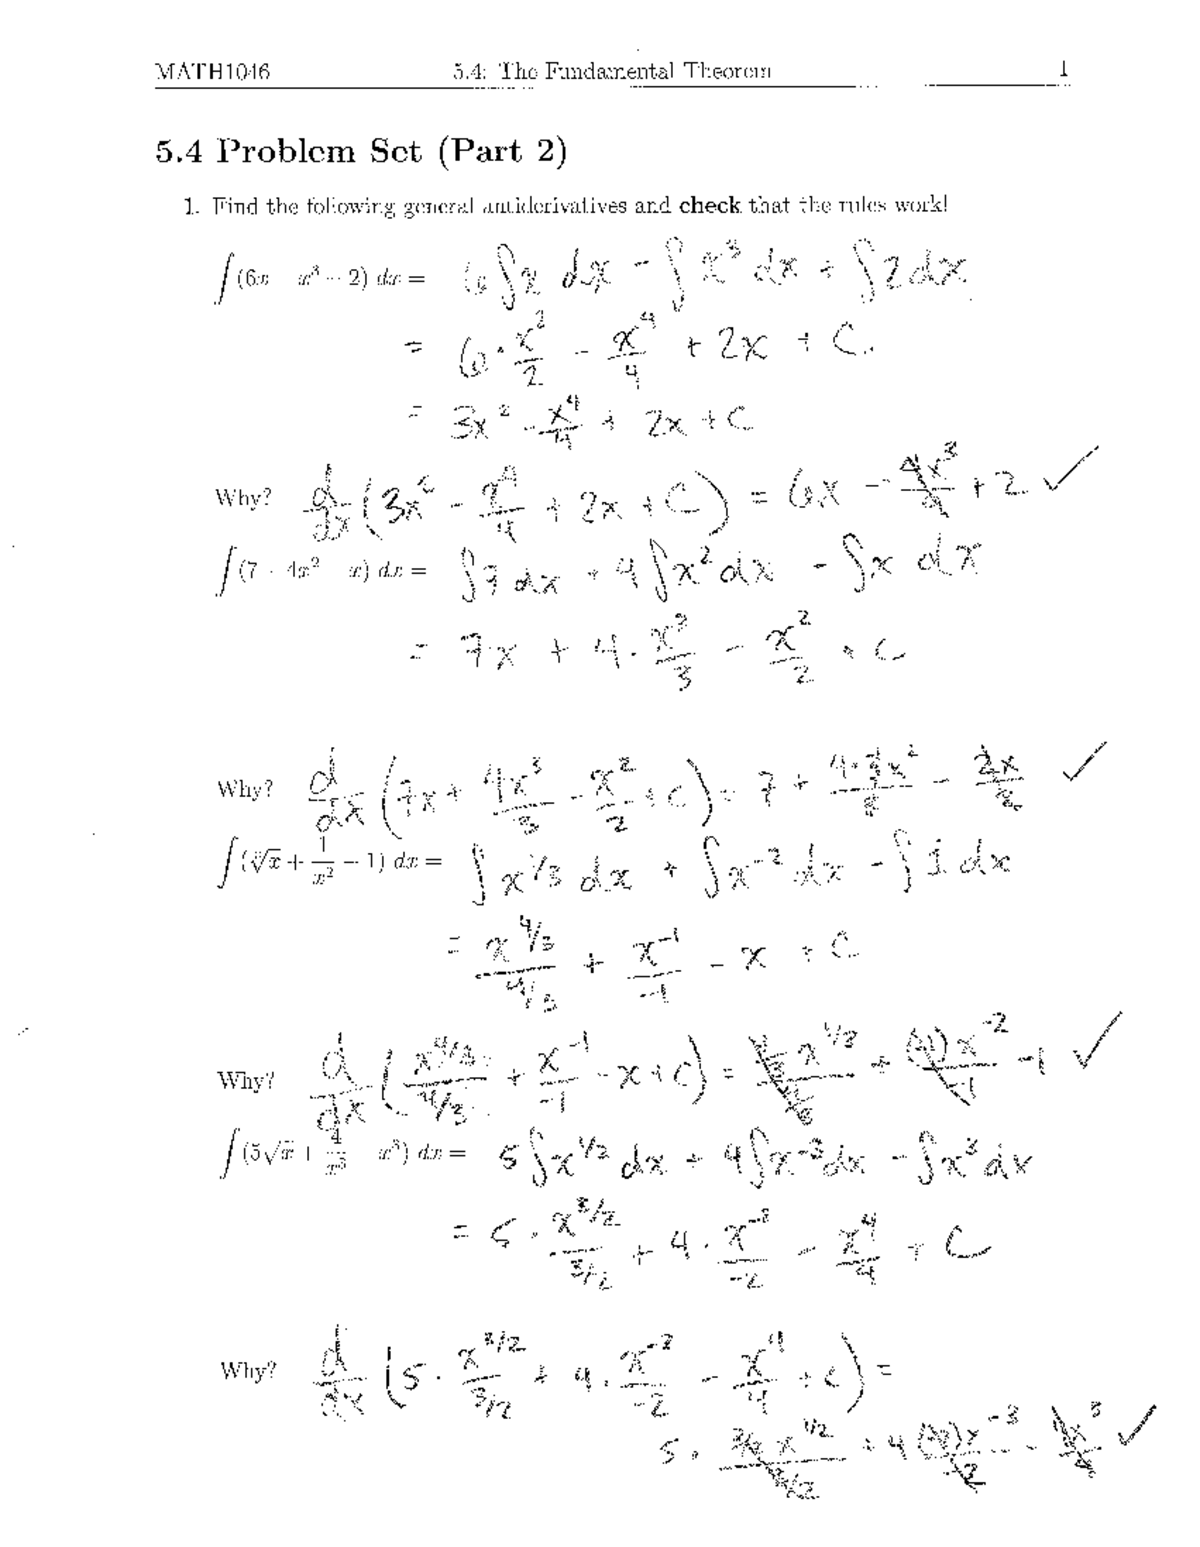 MATH1046 5.4: The Fundamental Theorem 1
5.4 Problem Set (Part 2)
1. Find the following general antiderivatives and check that the rules work!
∫(6x x³ - 2) dx = 6∫x dx - ∫x³ dx + ∫2 dx
= 6 · x²/2 - x⁴/4 + 2x + C.
= 3x² - x⁴/4 + 2x + C
Why? d/dx (3x² - x⁴/4 + 2x + C) = 6x - 4x³/4 + 2 ✓
∫(7 - 4x² x) dx = ∫7 dx + 4∫x² dx - ∫x dx
= 7x + 4 · x³/3 - x²/2 + C
Why? d/dx (7x + 4x³/3 - x²/2 + C) = 7 + 4·3x²/3 - 2x/2 ✓
∫(∛x + 1/x² - 1) dx = ∫x^(1/3) dx + ∫x⁻² dx - ∫1 dx
= x^(4/3)/(4/3) + x⁻¹/-1 - x + C
Why? d/dx (x^(4/3)/(4/3) + x⁻¹/-1 - x + C) = (4/3)x^(1/3)/(4/3) + (-1)x⁻²/-1 - 1 ✓
∫(5√x + 4/x³ x³) dx = 5∫x^(1/2) dx + 4∫x⁻³ dx - ∫x³ dx
= 5 · x^(3/2)/(3/2) + 4 · x⁻²/-2 - x⁴/4 + C
Why? d/dx (5 · x^(3/2)/(3/2) + 4 · x⁻²/-2 - x⁴/4 + C) =
5 · (3/2)x^(1/2)/(3/2) + 4(-2)x⁻³/-2 - 4x³/4 ✓